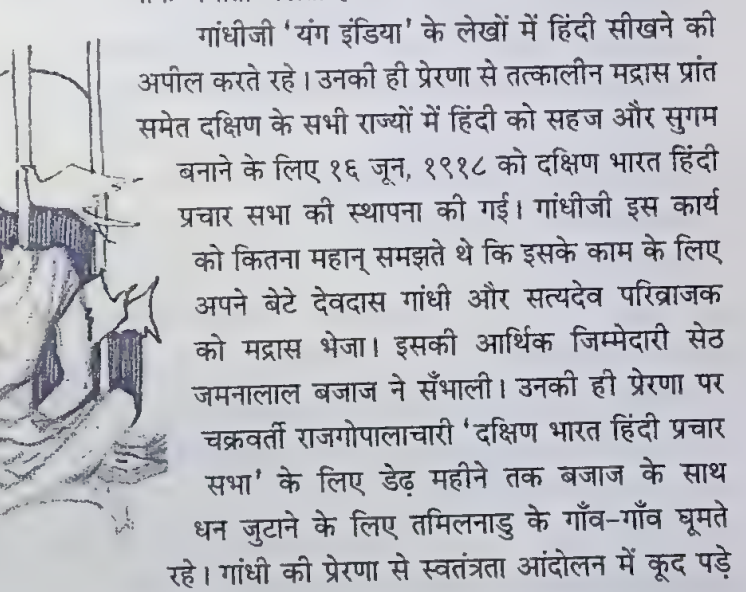 गांधीजी 'यंग इंडिया' के लेखों में हिंदी सीखने की
अपील करते रहे। उनकी ही प्रेरणा से तत्कालीन मद्रास प्रांत
समेत दक्षिण के सभी राज्यों में हिंदी को सहज और सुगम
बनाने के लिए १६ जून, १९१८ को दक्षिण भारत हिंदी
प्रचार सभा की स्थापना की गई। गांधीजी इस कार्य
को कितना महान् समझते थे कि इसके काम के लिए
अपने बेटे देवदास गांधी और सत्यदेव परिव्राजक
को मद्रास भेजा। इसकी आर्थिक जिम्मेदारी सेठ
जमनालाल बजाज ने सँभाली। उनकी ही प्रेरणा पर
चक्रवर्ती राजगोपालाचारी 'दक्षिण भारत हिंदी प्रचार
सभा' के लिए डेढ़ महीने तक बजाज के साथ
धन जुटाने के लिए तमिलनाडु के गाँव-गाँव घूमते
रहे। गांधी की प्रेरणा से स्वतंत्रता आंदोलन में कूद पड़े